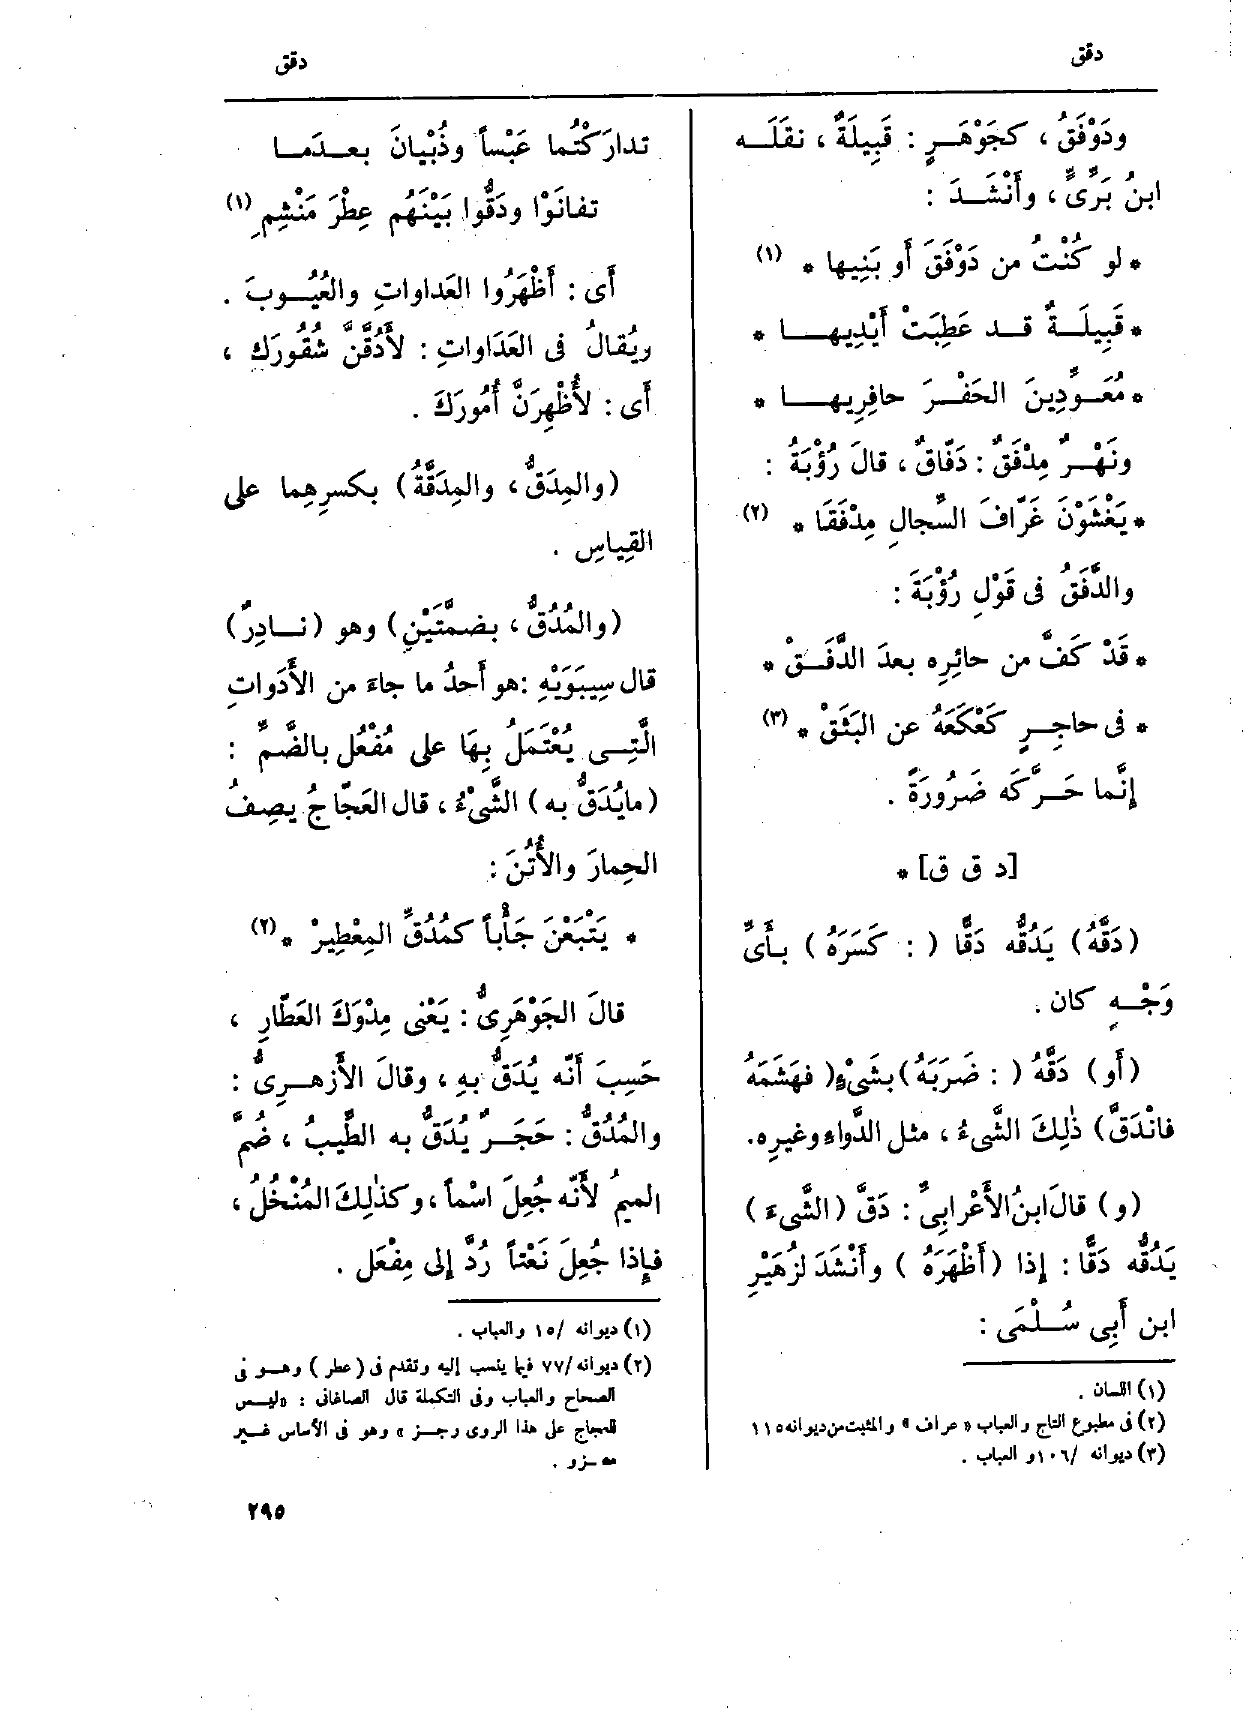 دقق
دقق
ودَوْفَقُ ، كجَوْهَـرٍ : قَبِيلَةٌ ، نقَلَـه
ابنُ بَرِّىٍّ ، وأَنْشَـدَ :
* لو كُنْتُ من دَوْفَقَ أَو بَنِيها * (١)
* قَبِيلَـةٌ قـد عَطِبَتْ أَيْدِيهـا *
* مُعَـوِّدِينَ الحَفْـرَ حافِرِيهـا *
ونَهْـرٌ مِدْفَقٌ : دَفّاقٌ ، قالَ رُؤْبَةُ :
* يَغْشَوْنَ غَرَّافَ السِّجالِ مِدْفَقَا * (٢)
والدَّفَقُ فى قَوْلِ رُؤْبَةَ :
* قَدْ كَفَّ من حائِرِه بعدَ الدَّفَـقْ *
* فى حاجِـرٍ كَعْكَعَهُ عن البَثَقْ * (٣)
إنَّما حَـرَّكَه ضَرُورَةً .
[د ق ق] *
(دَقَّهُ) يَدُقُّه دَقًّا ( : كَسَرَهُ ) بـأَىِّ
وَجْـهٍ كان .
(أَو) دَقَّهُ ( : ضَرَبَهُ) بشَىْءٍ (فهَشَمَهُ
فانْدَقَّ) ذٰلِكَ الشَّىءُ ، مثل الدَّواءِ وغيرِه.
(و) قالَ ابنُ الأَعْرابِىِّ : دَقَّ (الشَّىءَ)
يَدُقُّه دَقًّا : إذا (أَظْهَرَهُ ) وأَنْشَدَ لزُهَيْرِ
ابن أَبِى سُـلْمَى :
(١) اللسان .
(٢) فى مطبوع التاج والعباب « عراف » والمثبت من ديوانه ١١٥
(٣) ديوانه /١٠٦ و العباب .
تدارَكْتُما عَبْساً وذُبْيانَ بعـدَمـا
تفانَوْا ودَقُّوا بَيْنَهُم عِطْرَ مَنْشِمِ (١)
أَى : أَظْهَرُوا العَداواتِ والعُيُـوبَ .
ويُقالُ فى العَدَاواتِ : لأَدُقَّنَّ شُقُورَكَ ،
أَى : لأُظْهِرَنَّ أُمُورَكَ .
(والمِدَقُّ ، والمِدَقَّةُ) بكسرِهِما على
القِياسِ .
(والمُدُقُّ ، بضمَّتَيْنِ) وهو (نـادِرٌ)
قال سِيبَوَيْهِ : هو أَحدُ ما جاءَ من الأَدَواتِ
الَّتِـى يُعْتَمَلُ بِهَا على مُفْعُل بالضَّمِّ :
(مايُدَقُّ به) الشَّىْءُ ، قال العَجّاجُ يصِفُ
الحِمارَ والأُتُنَ :
* يَتْبَعْنَ جَأْباً كمُدُقِّ المِعْطِيرْ * (٢)
قالَ الجَوْهَرِىُّ : يَعْنى مِدْوَكَ العَطّارِ ،
حَسِبَ أَنَّه يُدَقُّ بهِ ، وقالَ الأَزهـرِىُّ :
والمُدُقُّ : حَجَـرٌ يُدَقُّ به الطِّيبُ ، ضُمَّ
الميمُ لأَنَّه جُعِلَ اسْماً ، وكذٰلِكَ المُنْخُلُ ،
فإِذا جُعِلَ نَعْتاً رُدَّ إلى مِفْعَل .
(١) ديوانه /١٥ والعباب .
(٢) ديوانه /٧٧ فيما ينسب إليه وتقدم فى (عطر ) وهـو فى
الصحاح والعباب وفى التكملة قال الصاغانى : «ليـس
للعجاج على هذا الروى رجـز » وهو فى الأساس غـير
معـزو .
٢٩٥